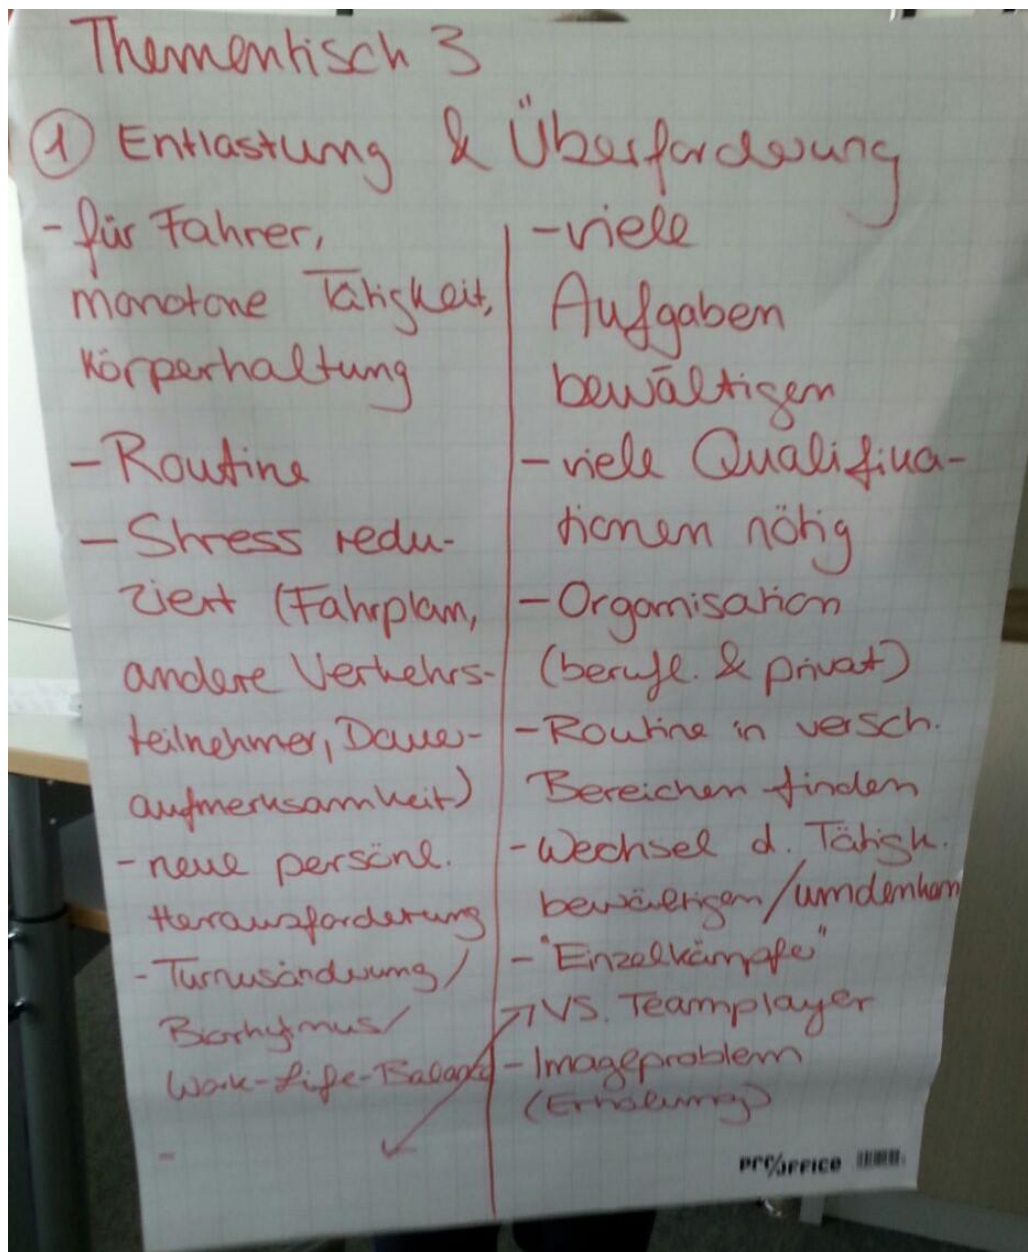 Thementisch 3
① Entlastung & Überforderung
- für Fahrer,
monotone Tätigkeit,
Körperhaltung
- Routine
- Stress redu-
ziert (Fahrplan,
andere Verkehrs-
teilnehmer, Dauer-
aufmerksamkeit)
- neue persönl.
Herausforderung
- Turnusänderung /
Biorhytmus /
Work-Life-Balance
-
- viele
Aufgaben
bewältigen
- viele Qualifika-
tionen nötig
- Organisation
(berufl. & privat)
- Routine in versch.
Bereichen finden
- Wechsel d. Tätigk.
bewältigen / umdenken
- "Einzelkämpfer"
VS. Teamplayer
- Imageproblem
(Erholung)
PRO/OFFICE